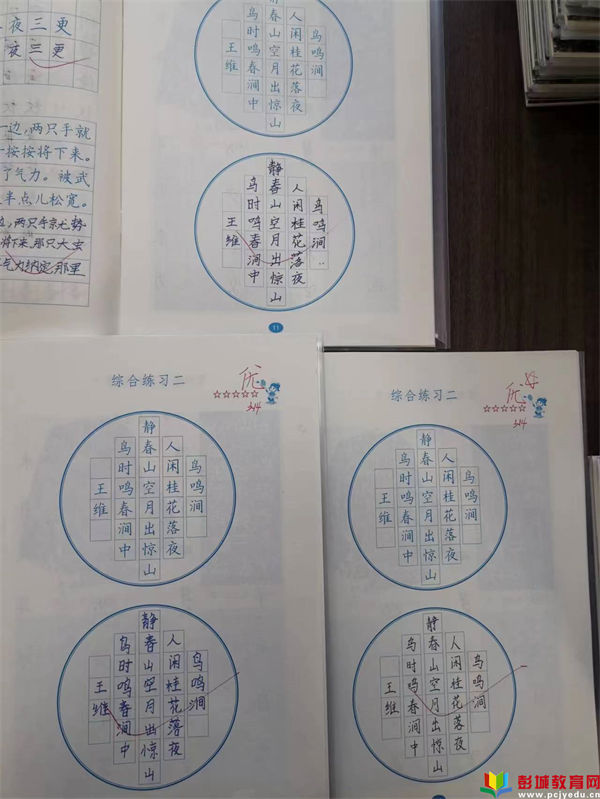 夜三更
夜三更
一边，两只手就
一按按将下来。
了气力。被武
半点儿松宽。
边，两只手就势
将下来.那只大虫
气力纳定,那里
鸟鸣涧
人闲桂花落夜
静春山空月出惊山
鸟时鸣春涧中
王维
鸟鸣涧
人闲桂花落夜
静春山空月出惊山
鸟时鸣春涧中
王维
11
综合练习二
优
3.14
鸟鸣涧
人闲桂花落夜
静春山空月出惊山
鸟时鸣春涧中
王维
鸟鸣涧
人闲桂花落夜
静春山空月出惊山
鸟时鸣春涧中
王维
综合练习二
优
3.14
鸟鸣涧
人闲桂花落夜
静春山空月出惊山
鸟时鸣春涧中
王维
鸟鸣涧
人闲桂花落夜
静春山空月出惊山
鸟时鸣春涧中
王维
彭城教育网
www.pcjyedu.cn